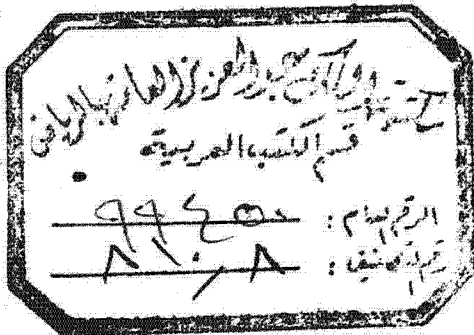 مكتبة الملك عبد العزيز العامة بالرياض
قسم الكتب العربية
الرقم العام : ٩٩٤٥٠
رقم التصنيف : ٨١٠,٨